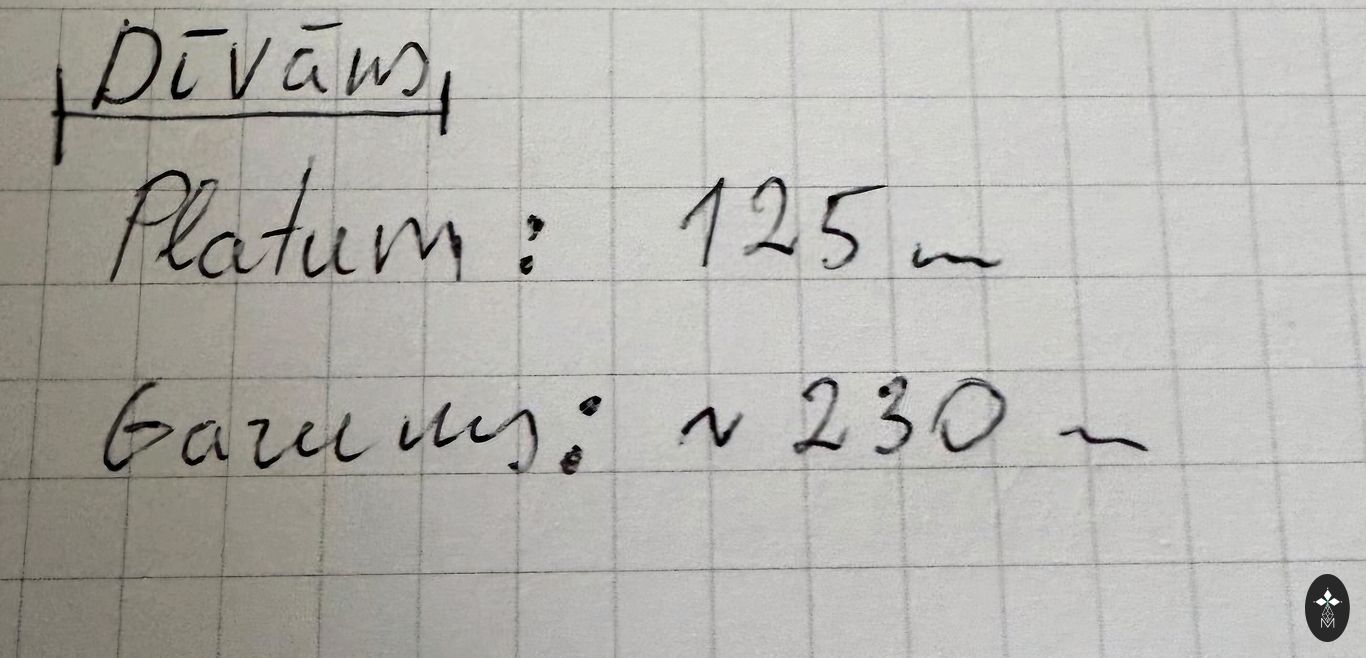 Dīvāns
Platums: 125
Garums: ~ 230